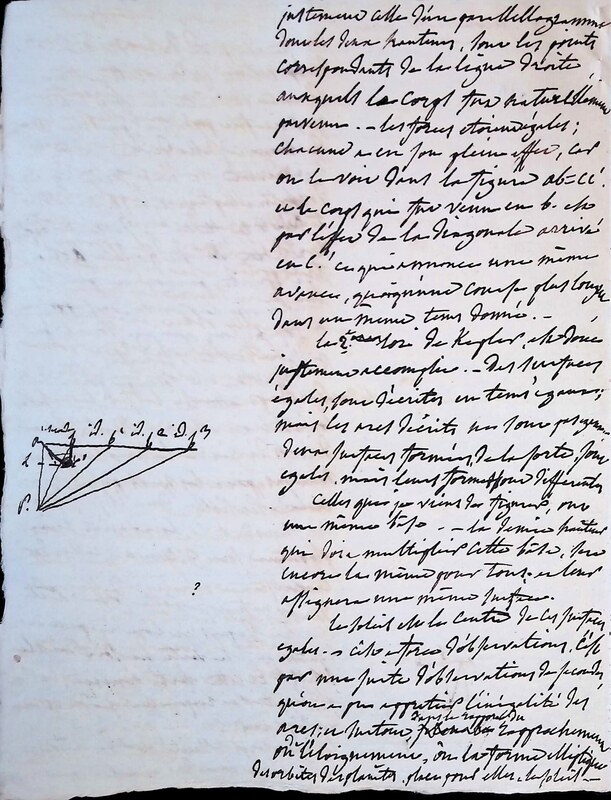 justement celle d'un parallellogramme
dont les deux hauteurs, sont les points
correspondants de la ligne droite,
auxquels le corps fut naturellement
parvenu. - les forces étoient égales;
chacune a eu son plein effet, car
on le voit dans la figure ab=cc'.
et le corps qui fut venu en b. est
par l'effet de la diagonale arrivé
en c'. ce qui annonce une même
avance, quoiqu'une course plus longue
dans un même tems donné. -
la 2e loi de Kepler, est donc
justement accomplie. - Des surfaces
égales, sont décrites en tems égaux;
mais les arcs décrits, ne sont pas égaux.
deux surfaces formées de la sorte, sont
égales. mais leurs formes sont différentes
Celles que je viens de figurer, ont
une même base. - la demie hauteur
qui doit multiplier cette base, sera
encore la même pour tous. et leur
assignera une même surface.
le soleil est le centre de ces surfaces
égales. - c'est affaire d'observations. C'est
par une suite d'observations
qu'on a pu apprécier l'inégalité des
arcs; et surtout
dans le rapport du
rapprochement
ou de l'éloignement, où la forme elliptique
des orbites des planètes, place pour elles, le soleil -
a
B
P.
?